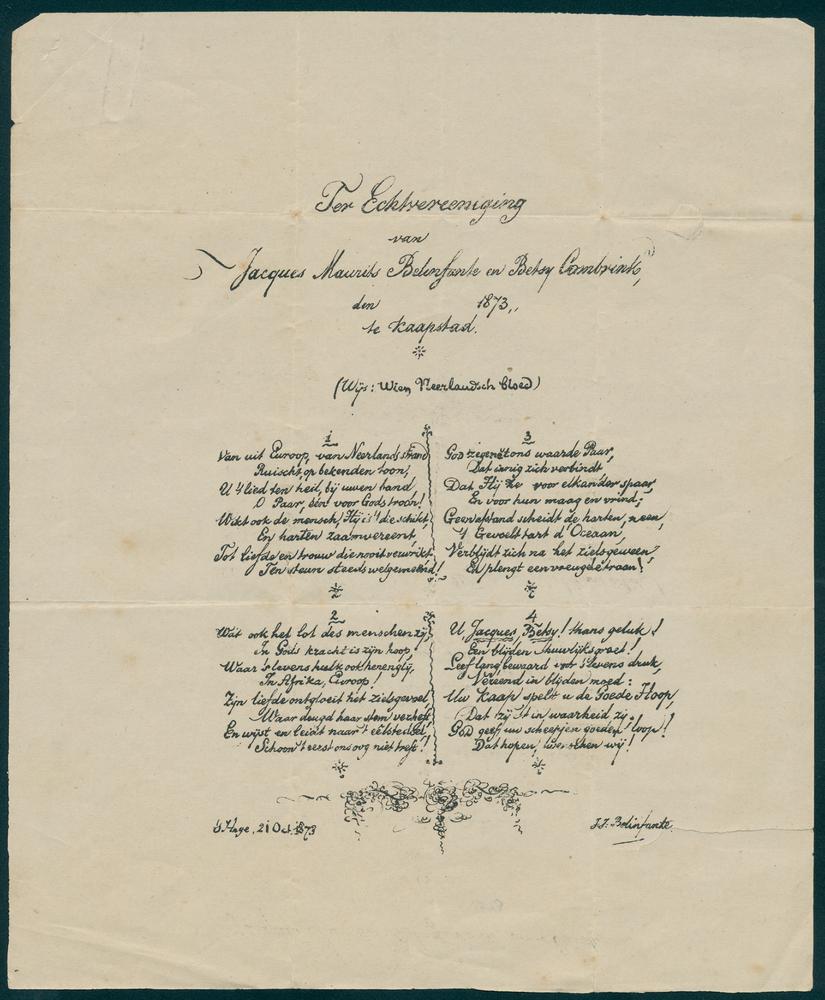 Ter Echtvereeniging
van
Jacques Maurits Belinfante en Betsy Combrink,
den 1873,,
te Kaapstad.
(Wijs: Wien Neerlandsch bloed)
1
Van uit Euroop, van Neerlands strand
Ruischt, op bekenden toon,
U 't lied ten heil, bij uwen band
O Paar, één voor Gods troon!
Wikt ook de mensch, Hij is 't die schikt,
En harten zaamvereent,
Tot liefde en trouw die nooit verwrikt
Ten steun steeds welgemeend!
2
Wat ook het lot des menschen zij,
In Gods kracht is zijn hoop,
Waar 's levens hulk ook henenglij,
In Afrika, Euroop!
Zijn liefde ontgloeit het zielsgevoel,
Waar deugd haar stem verheft,
En wijst en leidt naar 't eêlste doel,
Schoon 't eerst ons oog niet treft!
3
God zegen' t ons waarde Paar,
Dat innig zich verbindt
Dat Hij ze voor elkander spaar
En voor hun maag en vrind;
Geen afstand scheidt de harten, neen,
't Gevoel tart d' Oceaan,
Verblijdt zich na het zielsgeween
En plengt een vreugdetraan!
4
U, Jacques, Betsy! thans geluk!
Een blijden huwlijksgroet!
Leef lang bewaard voor 's levens druk,
Vereend in blijden moed:
Uw Kaap spelt u de Goede Hoop,
Dat zij 't in waarheid zij,
God geef uw scheepjen goeden loop!
Dat hopen, wenschen wij!
s'Hage, 21 Oct. 1873
J.J. Belinfante.